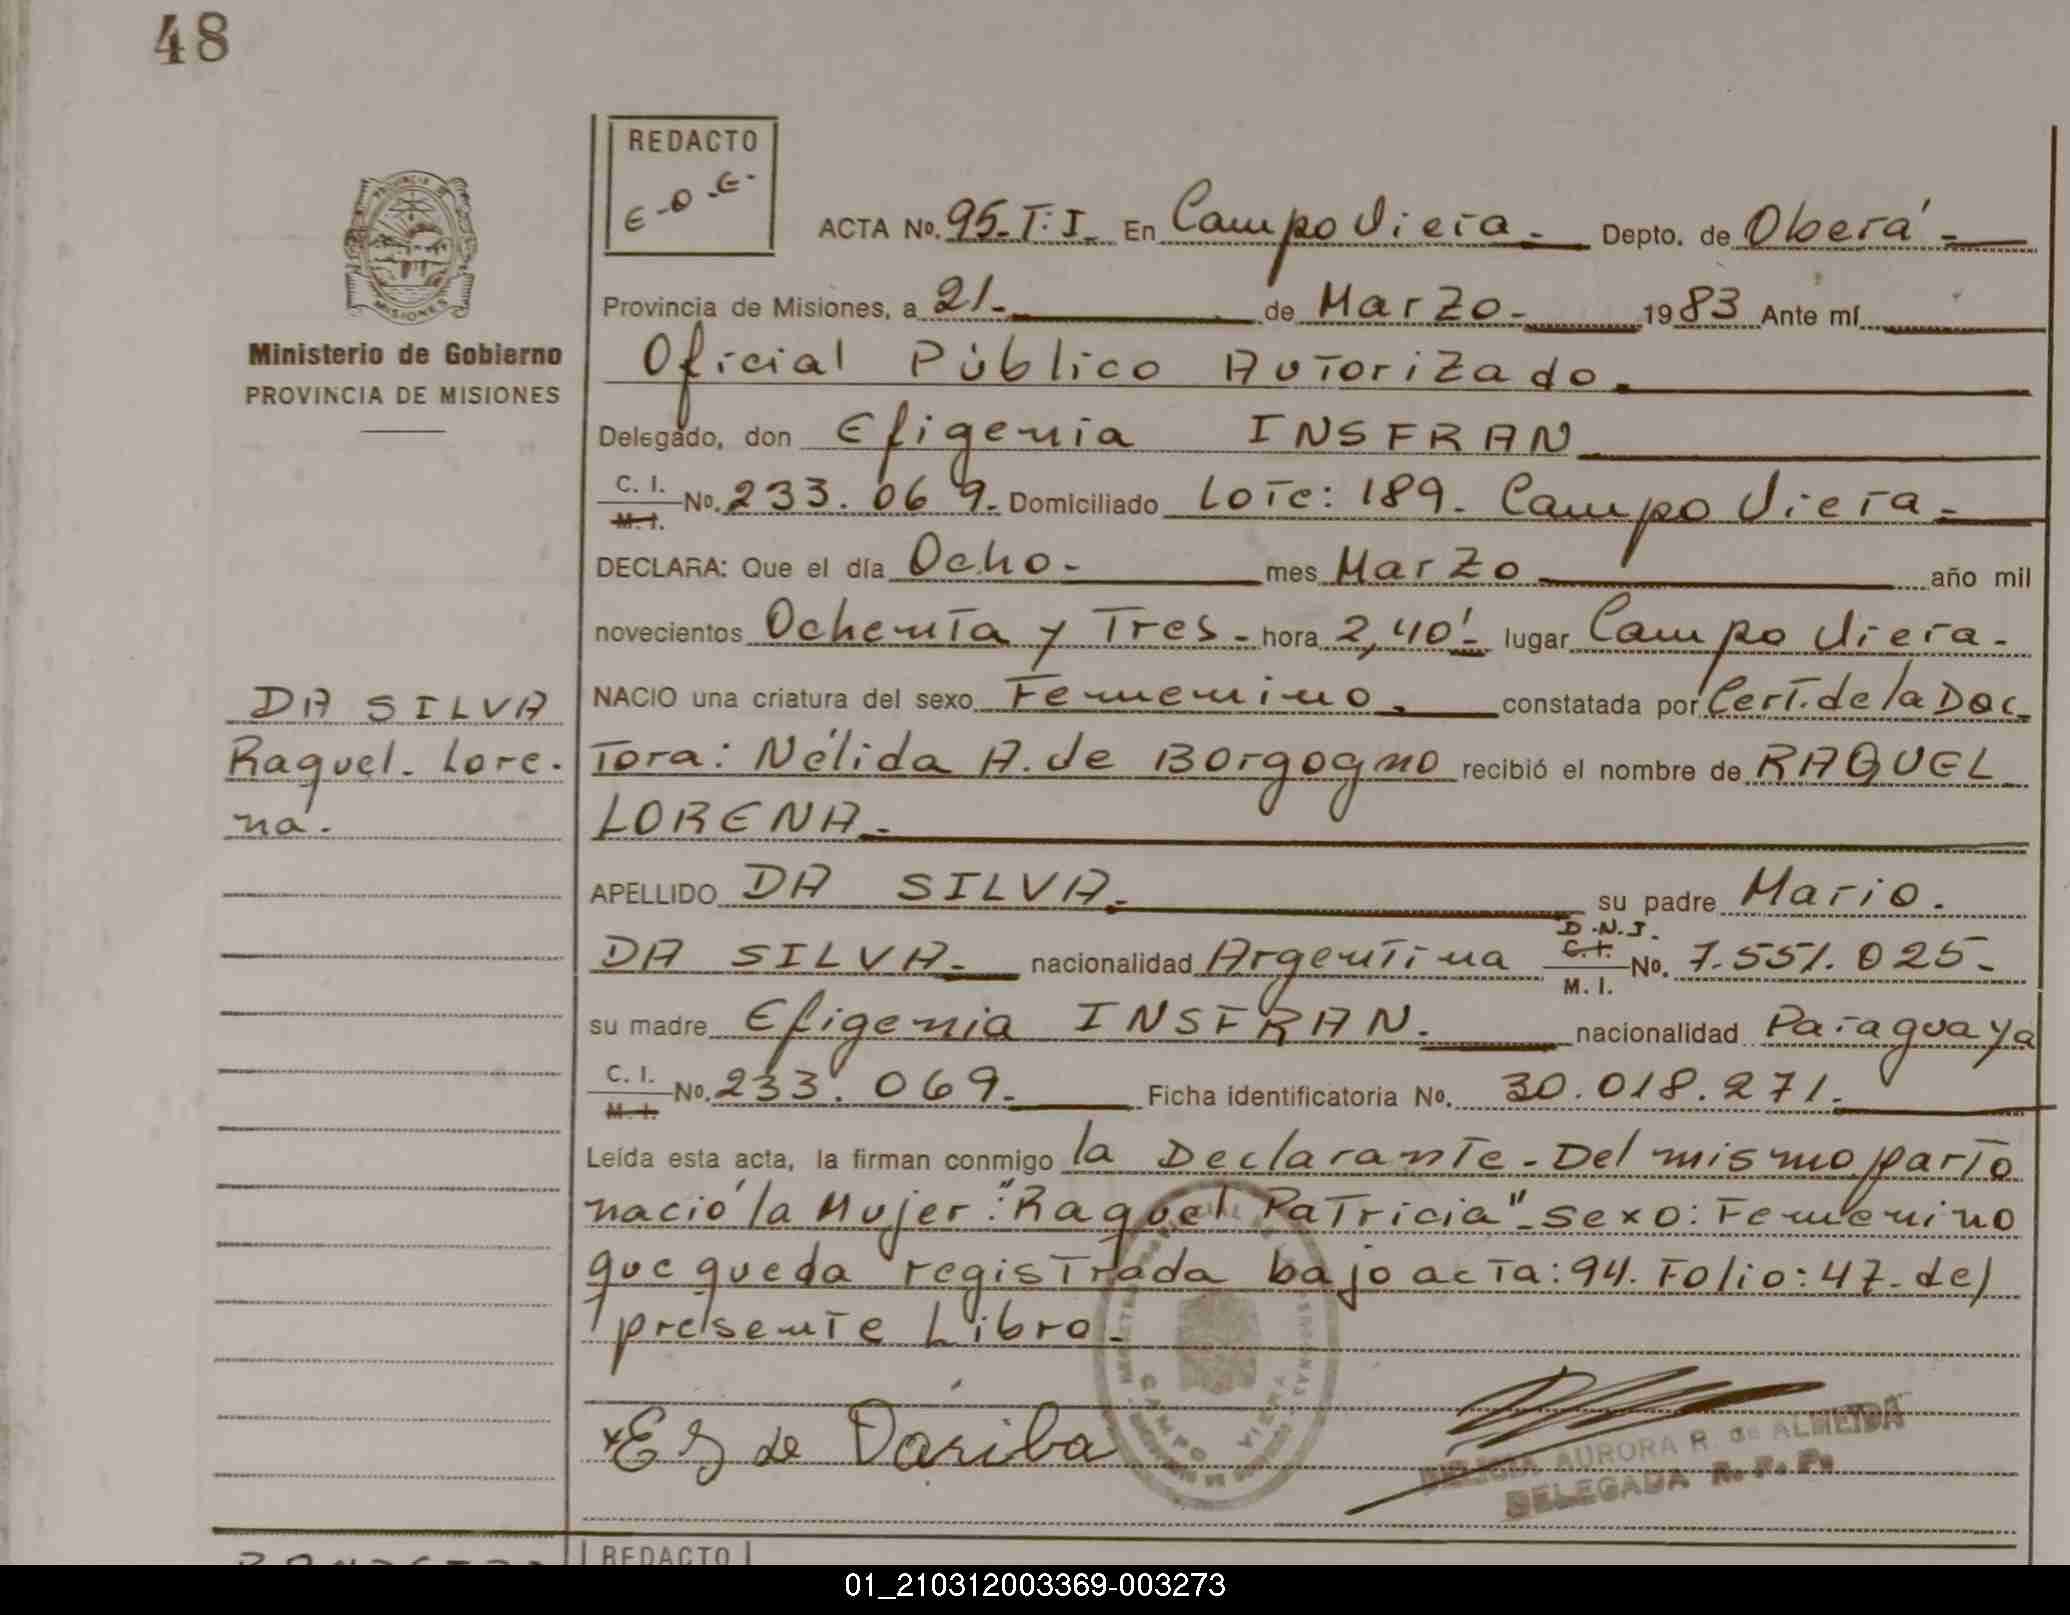 48
REDACTO
E-O-E-
ACTA No. 95-T:I. En Campo Viera.- Depto. de Oberá.-
Provincia de Misiones, a 21.- de Marzo.- 1983 Ante mí
Oficial Público Autorizado.
Delegado, don Efigenia INSFRAN
C. I.
M. I. No. 233.069.- Domiciliado Lote: 189. Campo Viera.-
DECLARA: Que el día Ocho.- mes Marzo año mil
novecientos Ochenta y Tres.- hora 2,40'.- lugar Campo Viera.-
NACIO una criatura del sexo Femenino. constatada por Cert. de la Doc-
tora: Nélida A. de Borgogno recibió el nombre de RAQUEL
LORENA.-
APELLIDO DA SILVA.- su padre Mario.
DA SILVA.- nacionalidad Argentina D.N.I. C.I. M. I. No. 7.551.025.-
su madre Efigenia INSFRAN. nacionalidad Paraguaya
C. I.
M. I. No. 233.069.- Ficha identificatoria No. 30.018.271.-
Leída esta acta, la firman conmigo la Declarante.- Del mismo parto
nació la Mujer: "Raquel Patricia".- Sexo: Femenino
que queda registrada bajo acta: 94. Folio: 47. del
presente Libro.-
Ministerio de Gobierno
PROVINCIA DE MISIONES
DA SILVA
Raquel. Lore-
na.
PROVINCIA DE
MISIONES
CAMPO VIERA
AURORA R. de ALMEIDA
DELEGADA R. P. P.
REDACTO
01_210312003369-003273